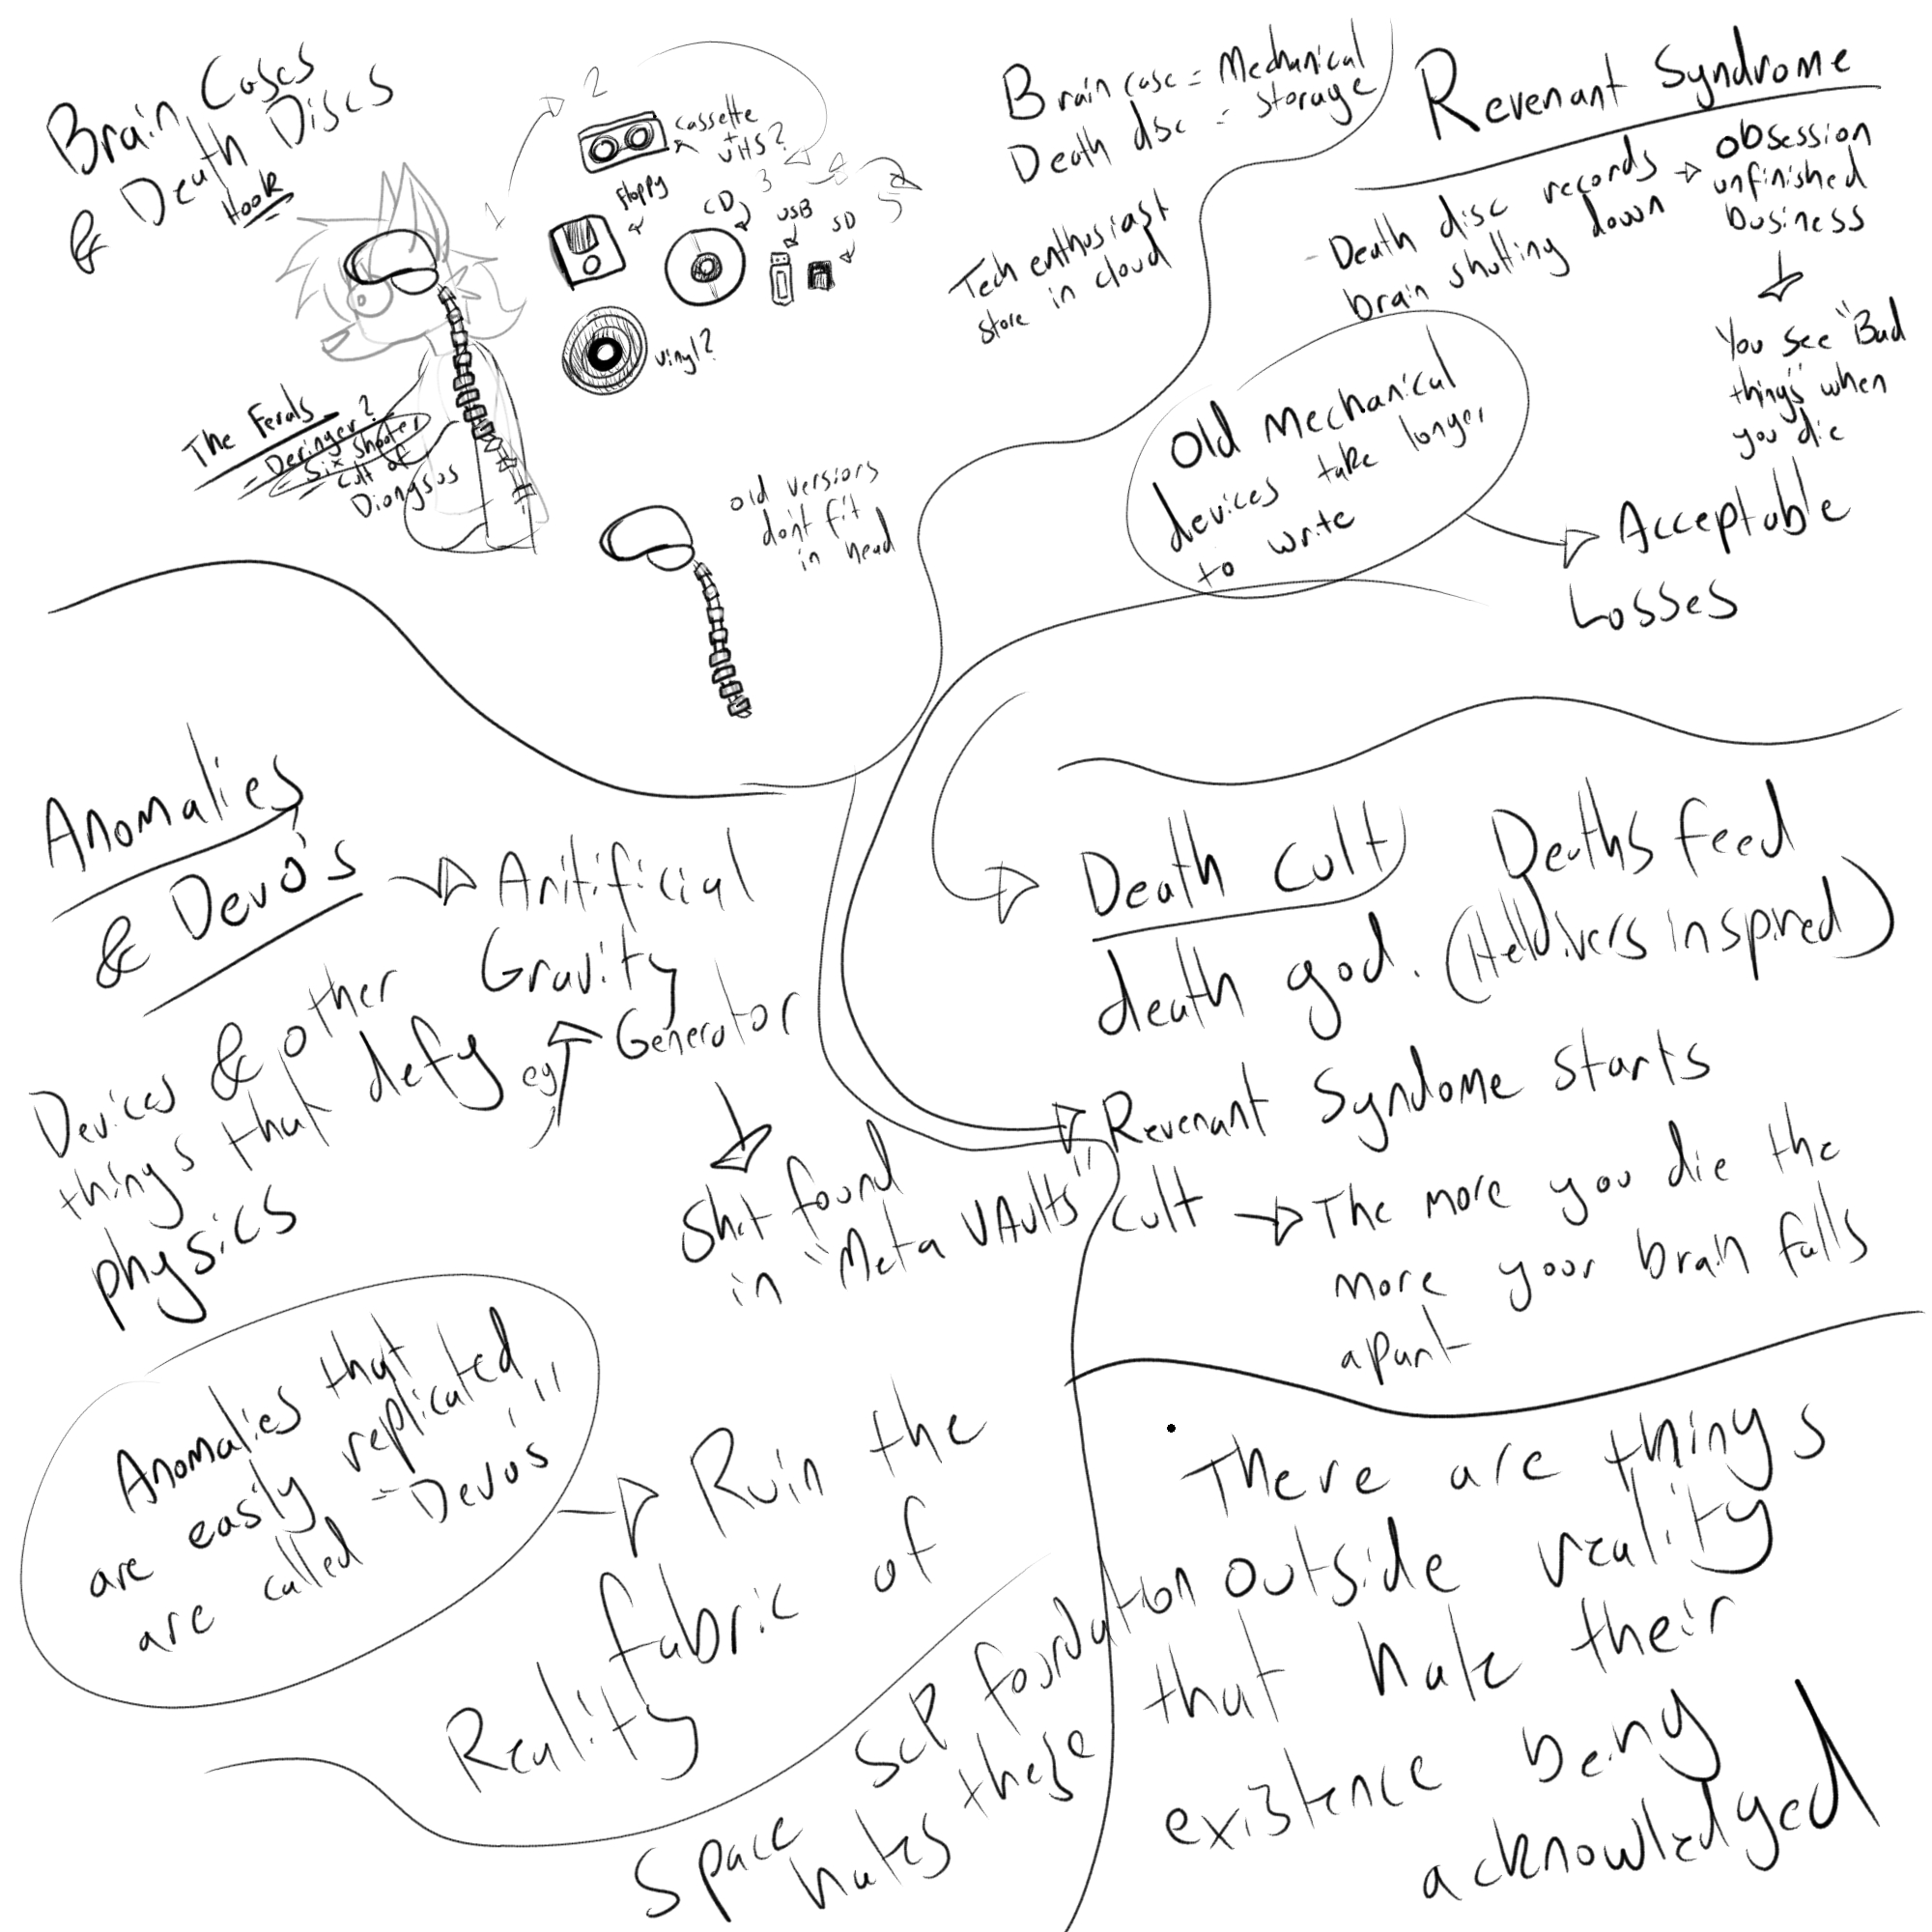 Brain Cases
& Death Discs
Hook
1
2
3
4
5
Cassette
+
VHS?
Floppy
CD
USB
SD
Vinyl?
The Ferals
- Deringer?
- Six shooter
- Cult of
Dionysus
old versions
don't fit
in head
Brain case = Mechanical
Death disc = storage
Tech enthusiast
store in cloud
Revenant Syndrome
- Death disc records
brain shutting down
obsession
unfinished
business
You see "Bad
things" when
you die
Old Mechanical
devices take longer
to write
Acceptable
Losses
Anomalies
& Devo's
Anitificial
Gravity
Generator
eg
Devices & other
things that defy
physics
Shit found
in "Meta VAults"
Death Cult
Deaths feed
death god. (Helldivers inspired)
Revenant Syndome starts
cult
The more you die the
more your brain falls
apart
Anomalies that
are easily replicated
are called "Devo's"
Ruin the
fabric of
Reality
Space SCP foundation
hates these
There are things
outside reality
that hate their
existence being
acknowledged